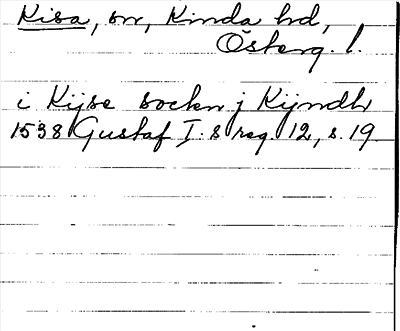 Kisa, sn, Kinda hd,
Österg. l.
i Kijse sockn j Kijndh
1538 Gustaf I:s reg. 12, s. 19.